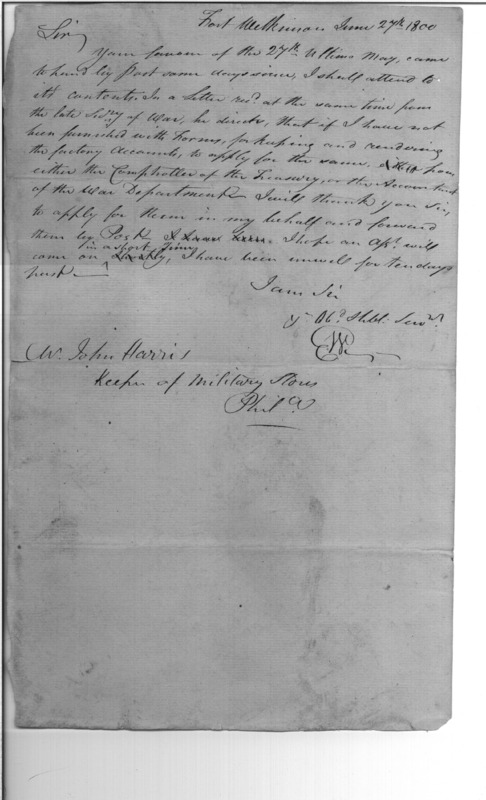 Fort Wilkinson June 27th 1800
Sir,
Your favour of the 27th Ultimo May, came
to hand by Post some days since, I shall attend to
its contents. In a Letter recd. at the same time from
the late Secry. of War, he directs, that if I have not
been furnished with Forms, for keeping and rendering
the factory Accounts, to apply for the same, either from
either the Comptroller of the Treasury, or the Accountant
of the War Department. I will thank you Sir,
to apply for them in my behalf and forward
them by Post. I have been I hope an Asst. will
in a short time
come on shortly, I have been unwell for ten days
past.
I am Sir
yr Obd. Hble. Servt.
EW.
Mr. John Harris
Keeper of Military Stores
Phila.